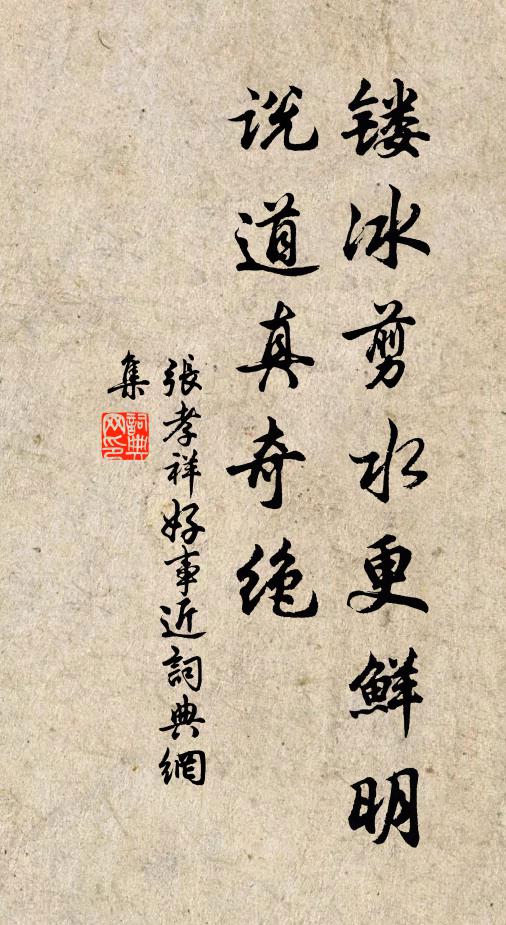 镂冰剪水更鲜明
说道真奇绝
張孝祥好事近詞典網
集
詞典网印